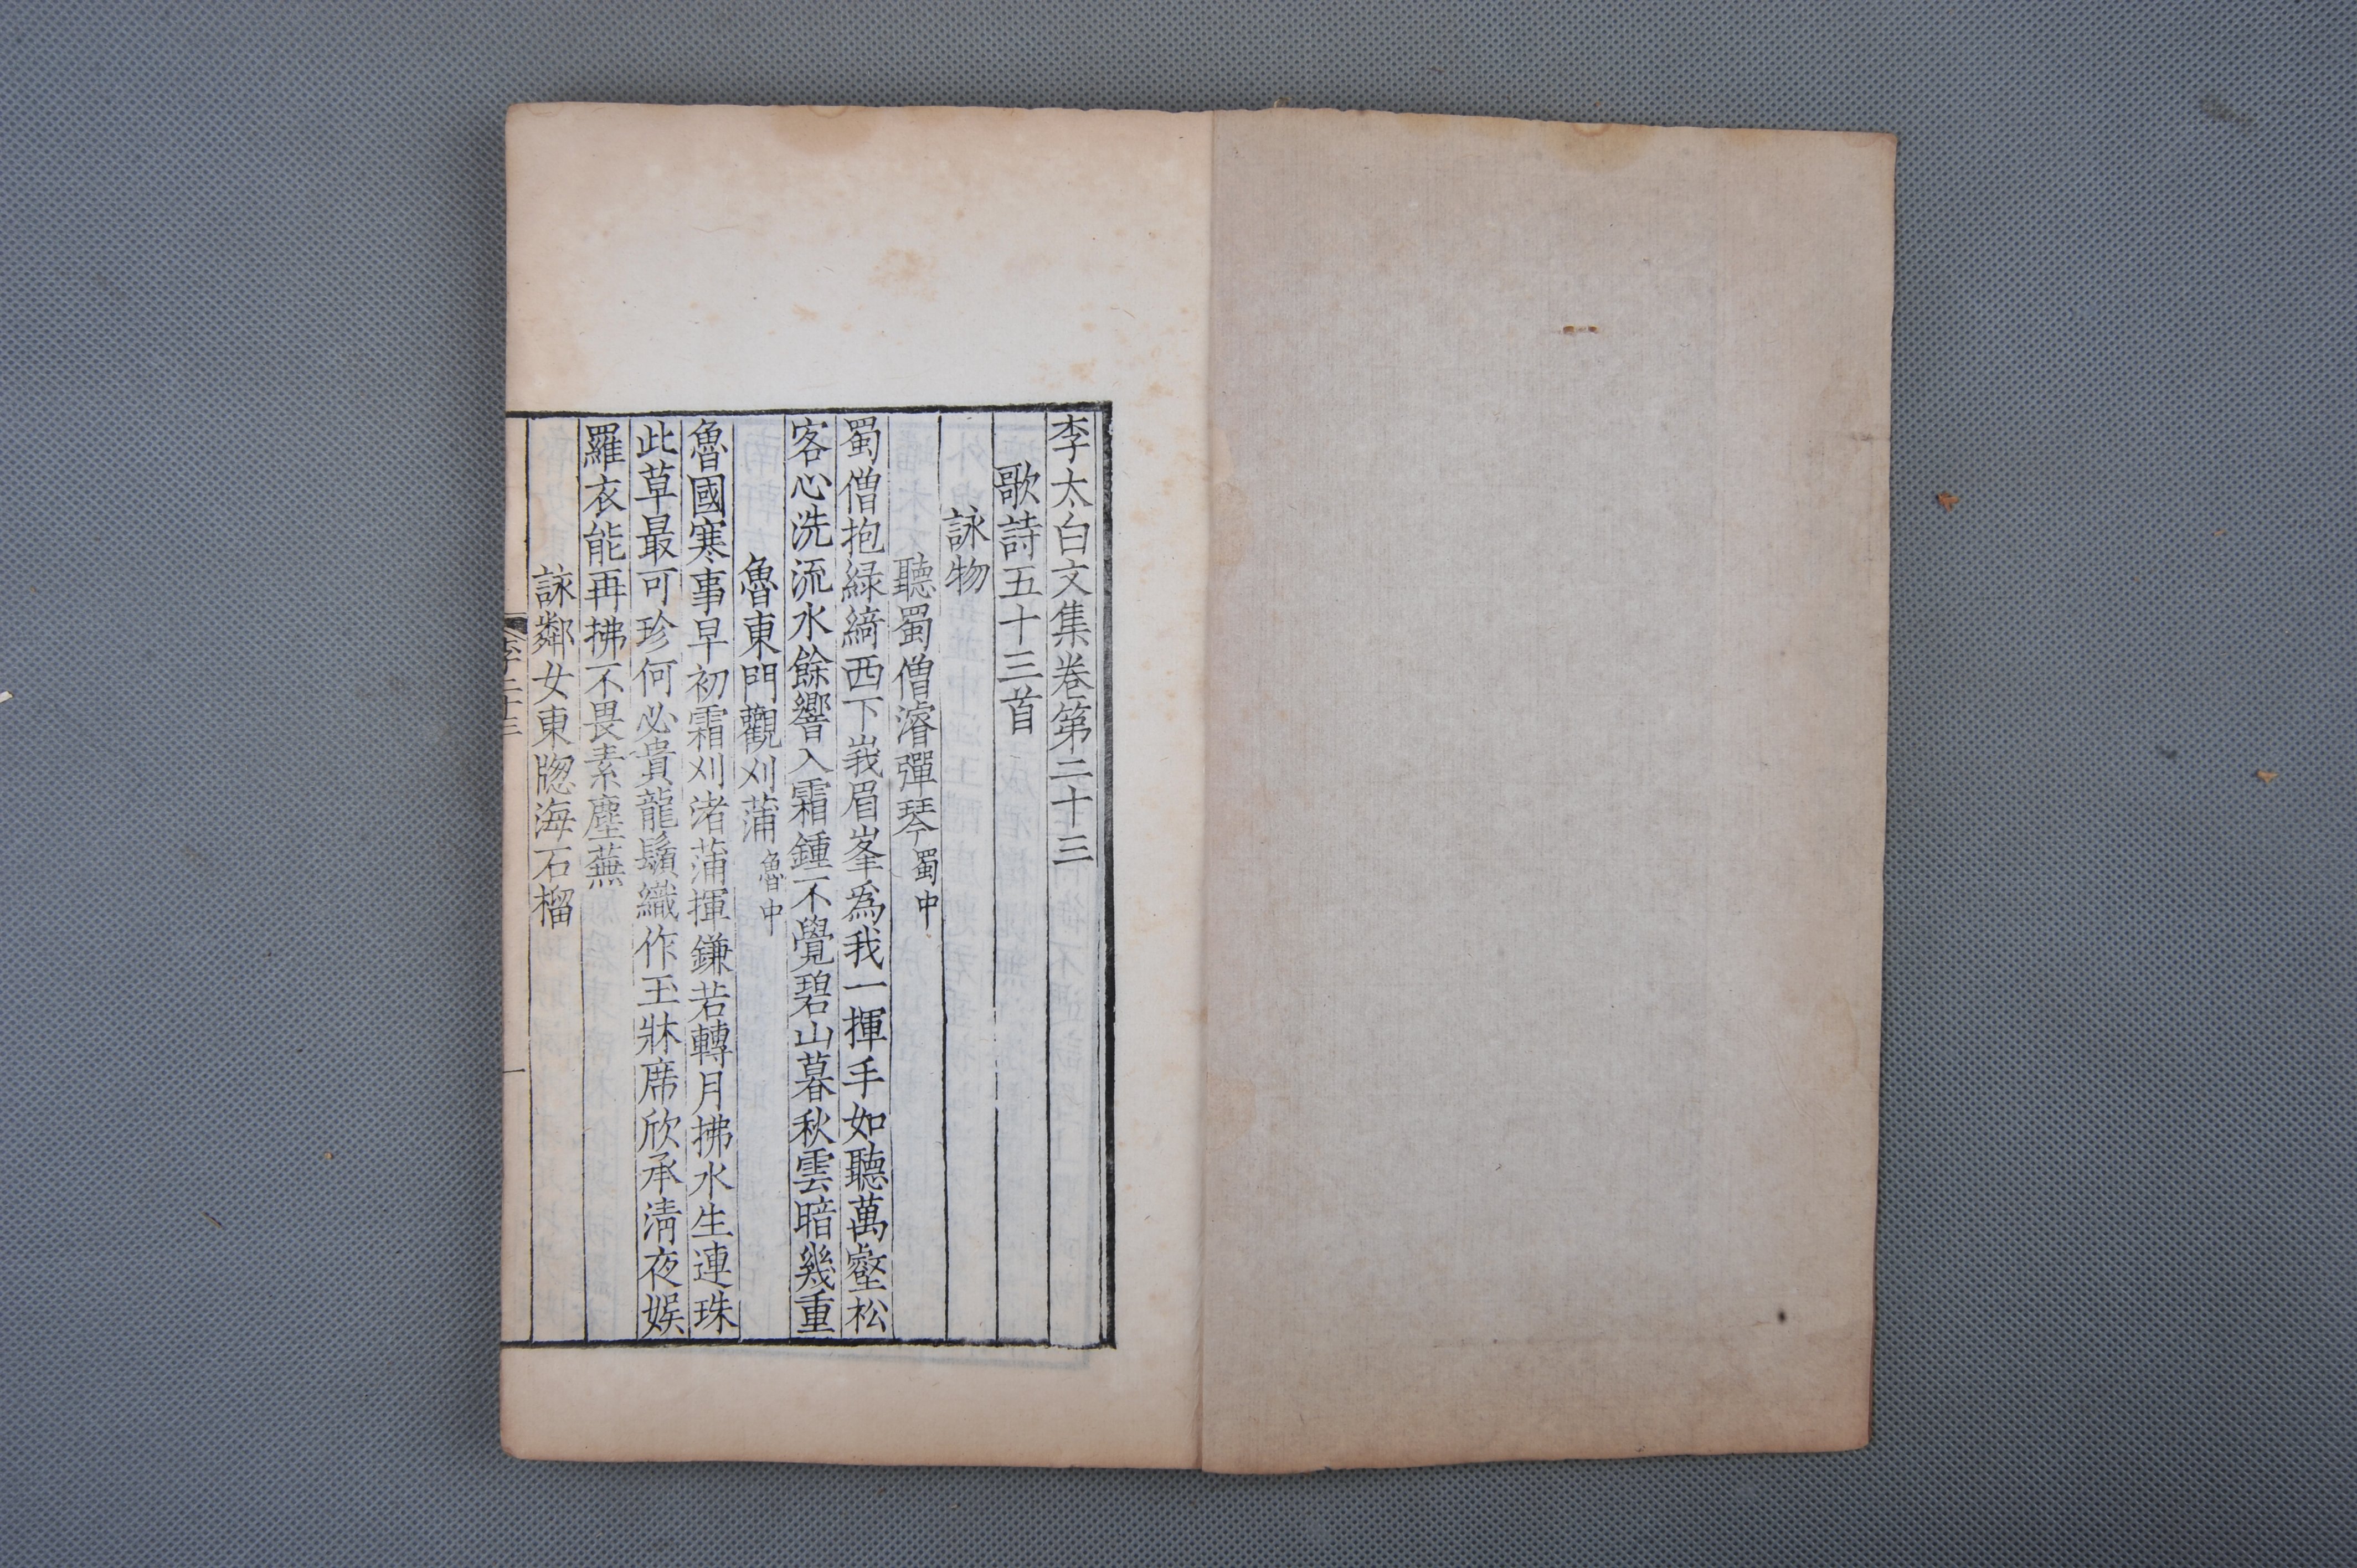 李太白文集卷第二十三
歌詩五十三首
詠物
聽蜀僧濬彈琴 蜀中
蜀僧抱緑綺西下峩眉峯爲我一揮手如聽萬壑松
客心洗流水餘響入霜鍾不覺碧山暮秋雲暗幾重
魯東門觀刈蒲 魯中
魯國寒事早初霜刈渚蒲揮鎌若轉月拂水生連珠
此草最可珍何必貴龍鬚織作玉牀席欣承清夜娛
羅衣能再拂不畏素塵蕪
詠鄰女東牎海石榴